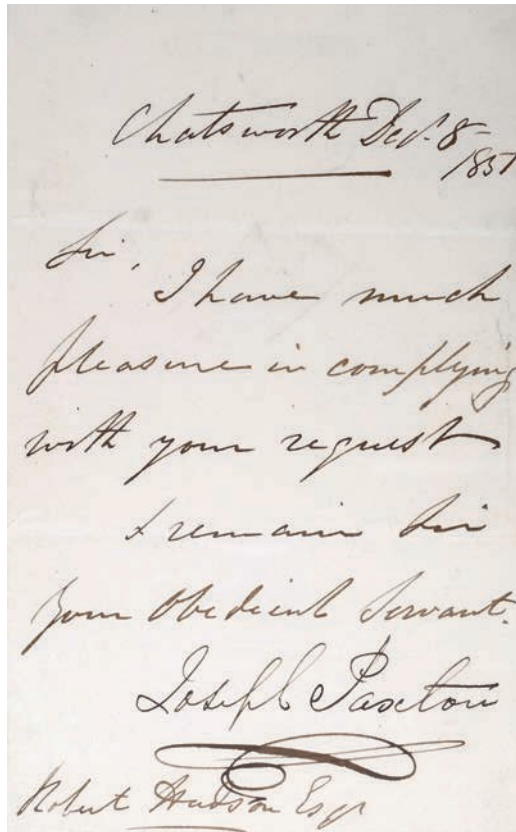 Chatsworth Decr. 8
1851
Sir,
I have much
pleasure in complying
with your request
I remain Sir
Your Obedient Servant.
Joseph Paxton
Robert Hudson Esqr